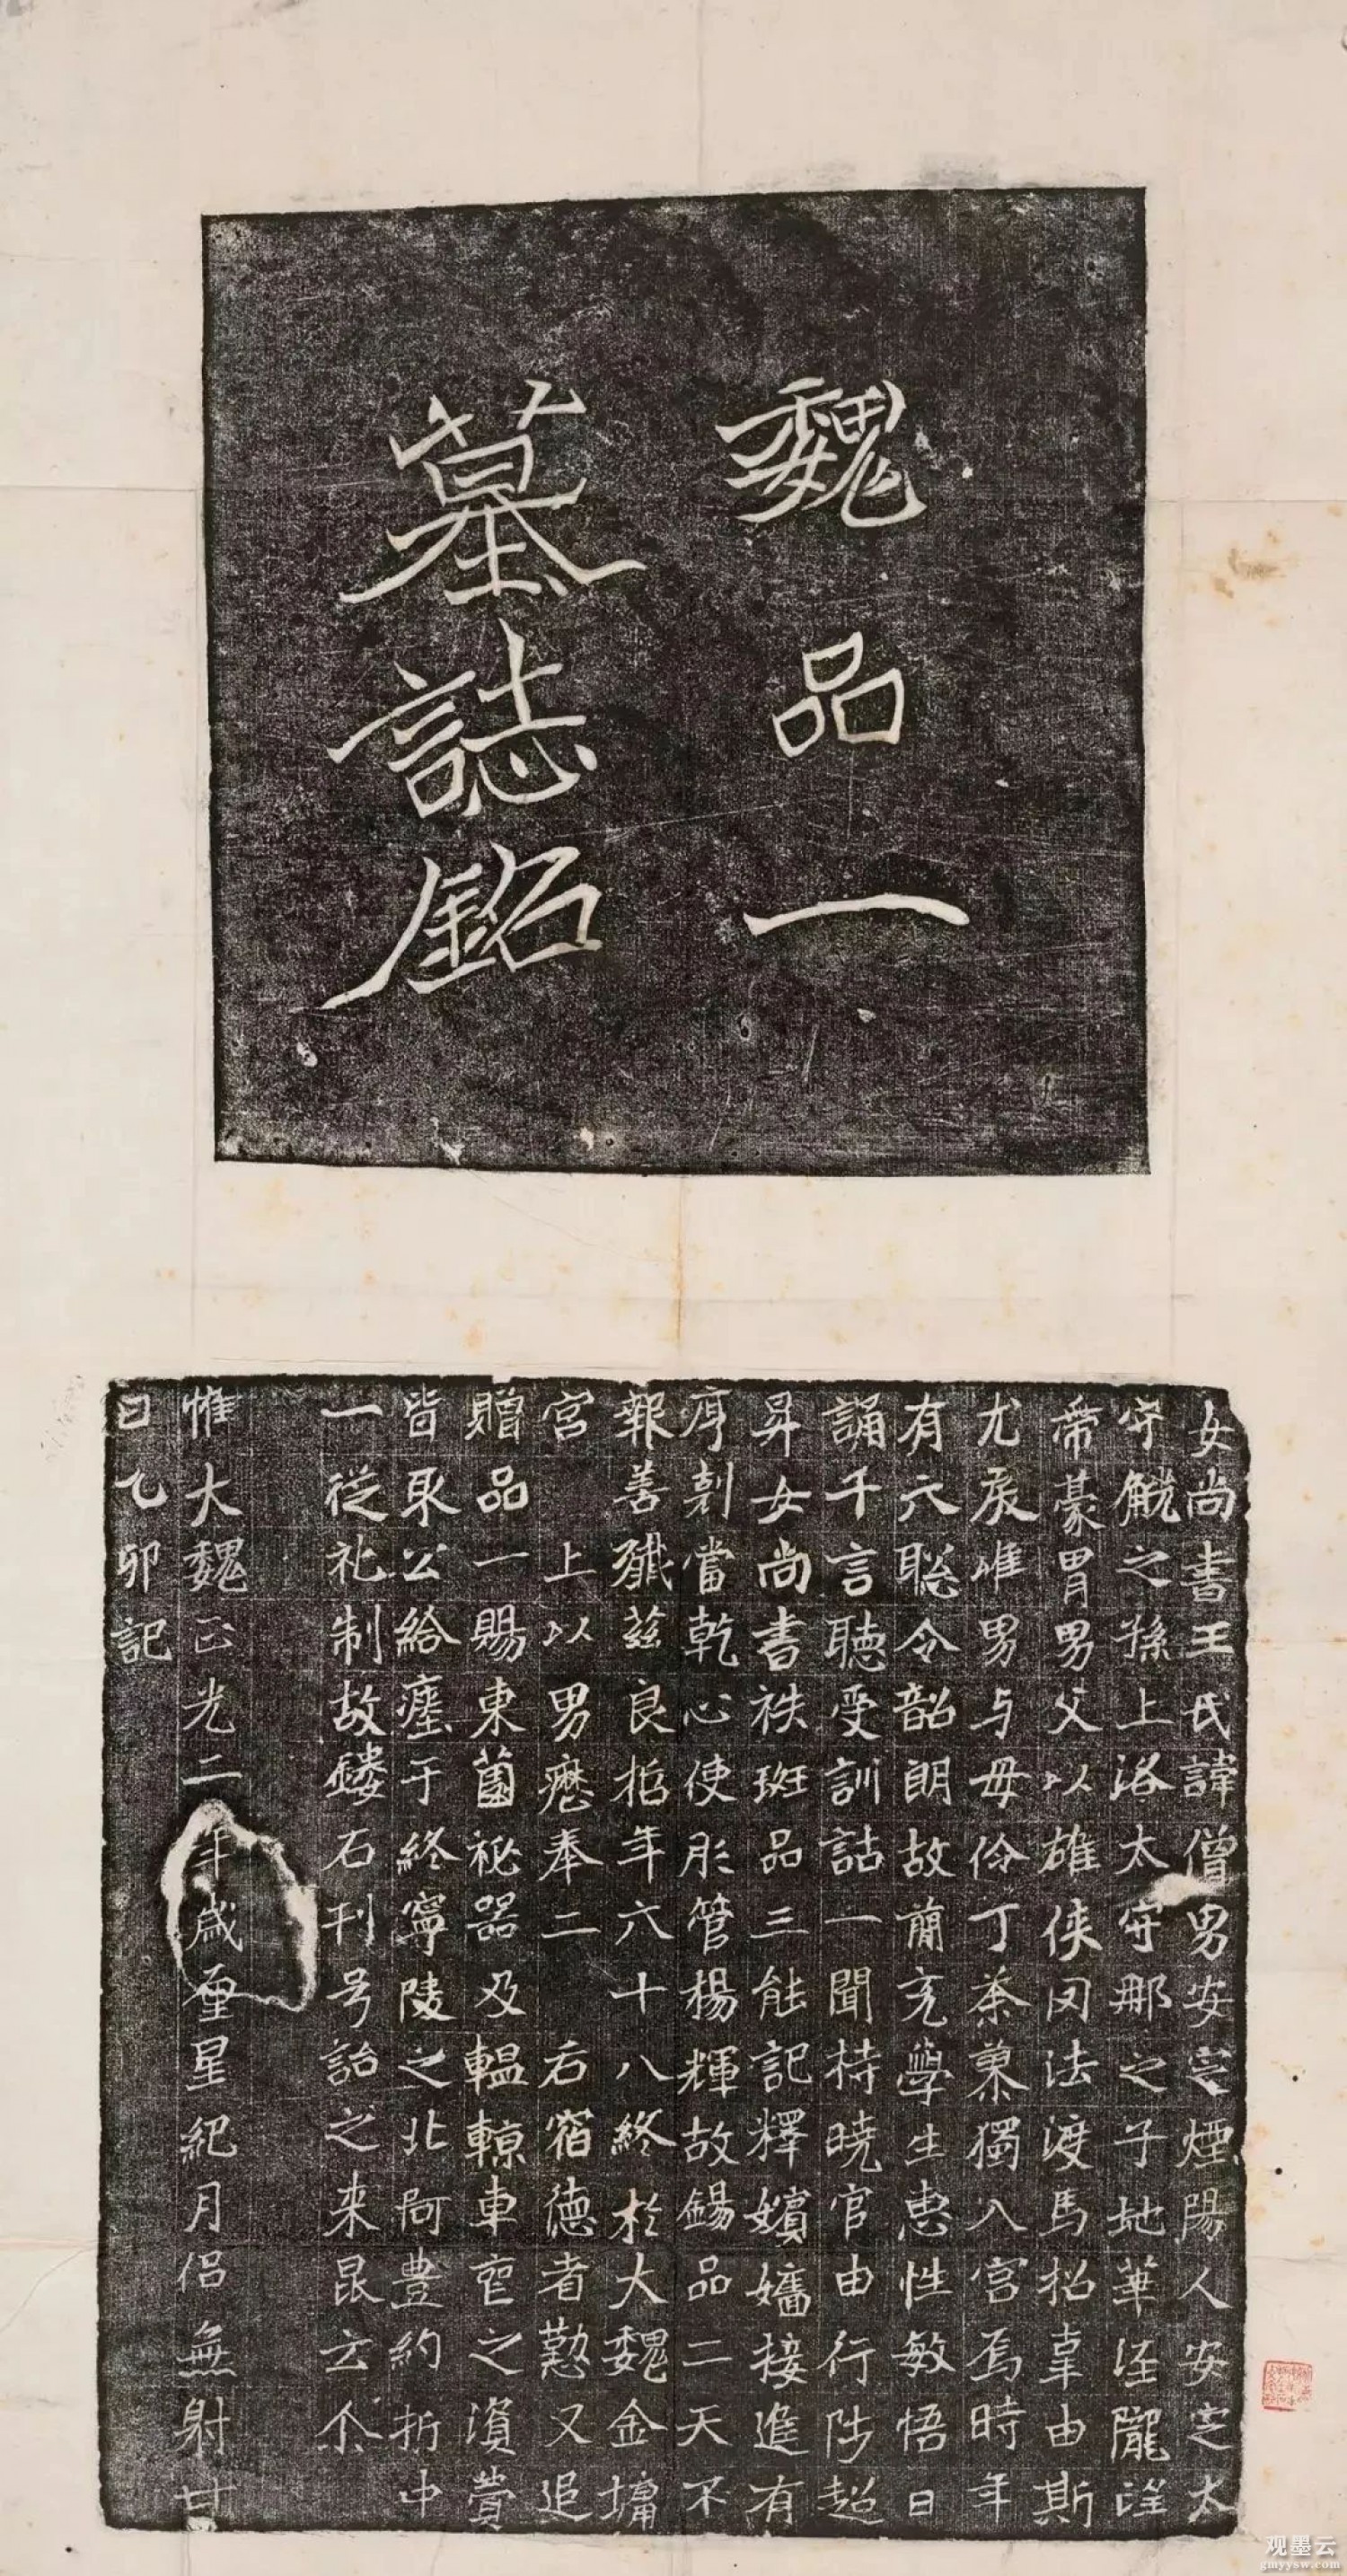 魏品一
墓誌銘
女尚書王氏諱僧男安定煙陽人安定太
守觥之孫上洛太守那之子地華涇隴望
帝豪胄男父以雄俠罔法渡馬招辜由斯
尤戾唯男与母伶丁荼蓼獨入宮焉時年
有六聡令韶朗故簡充學生惠性敏悟日
誦千言聽受訓詁一聞持曉官由行陟超
昇女尚書秩班品三能記釋嬪嬙接進有
序剋當乾心使彤管楊輝故錫品二天不
報善殲茲良哲年六十八終於大魏金墉
宮上以男歷奉二后宿德者勤又追
贈品一賜東薗祕器及轀輬車壙之濱賷
皆取公給瘞于終寧陵之北阿豊約折中
一從礼制故鏤石刊号詒之来昆云尒
惟大魏正光二年歲在星紀月侶無射廿
日乙卯記
观墨云
gmyysw.com